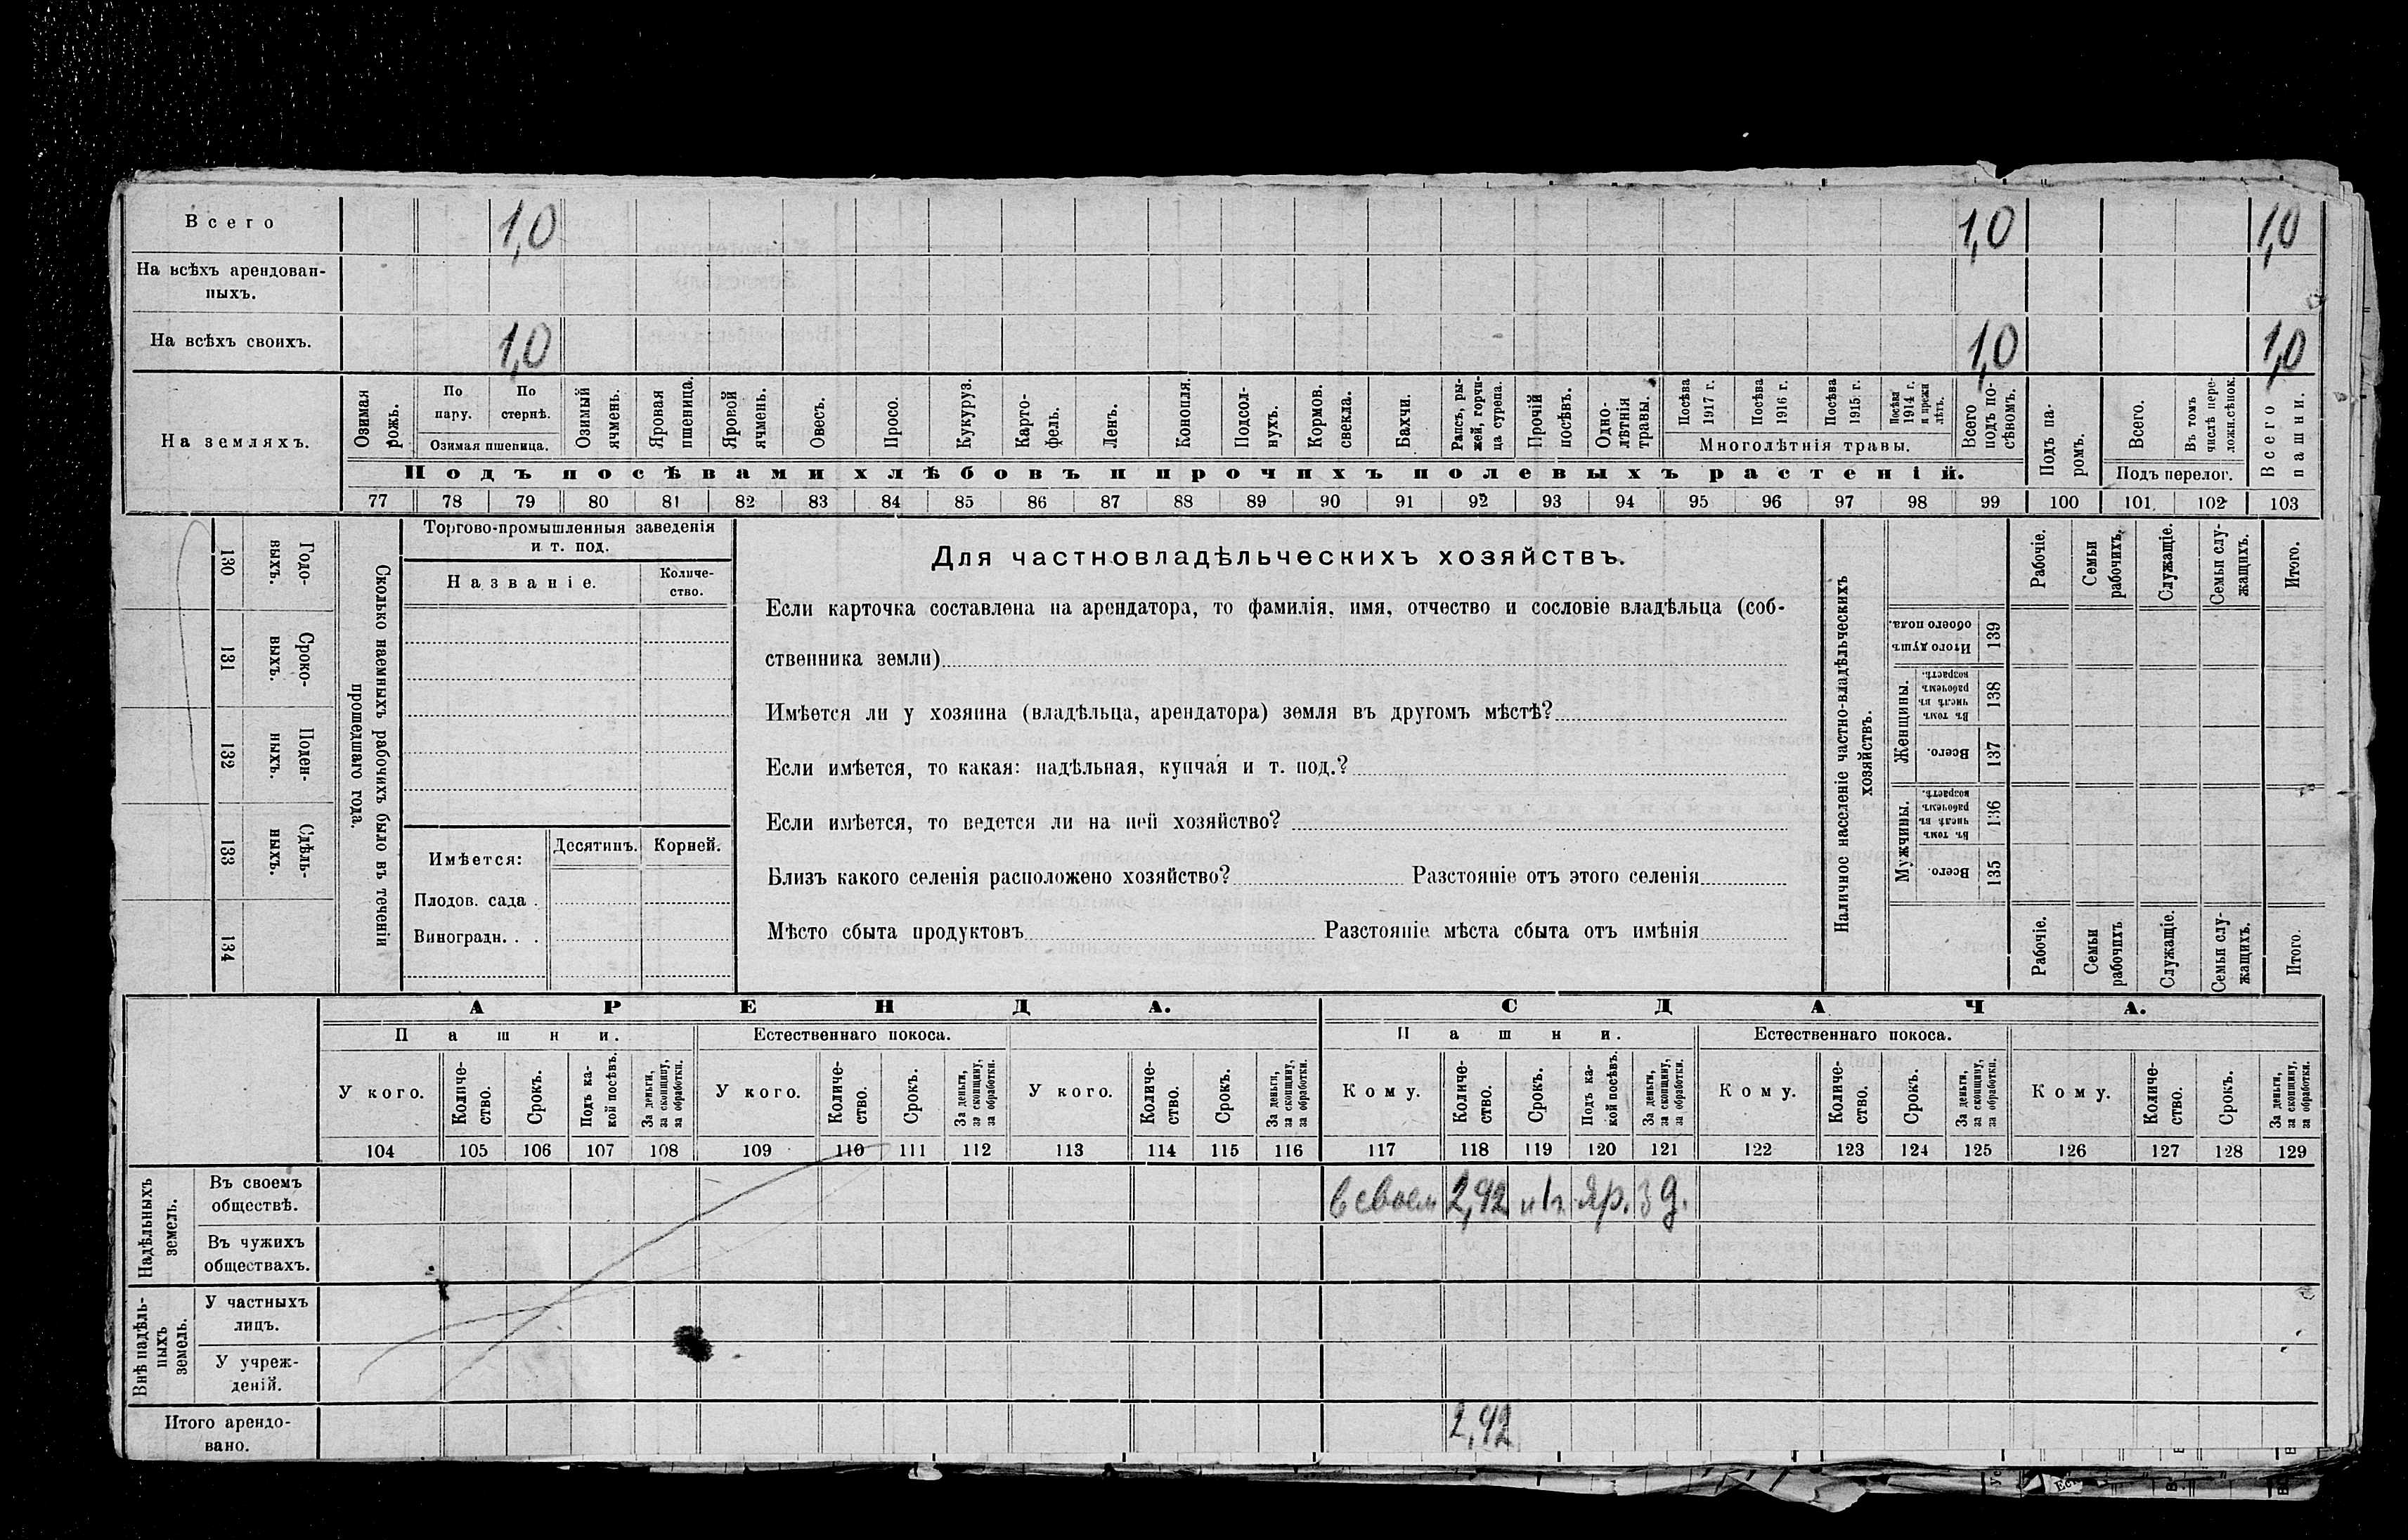 Всего 1,0 1,0 1,0
На всѣхъ арендован-
ныхъ.
На всѣхъ своихъ. 1,0 1,0 1,0
На земляхъ.
Озимая рожь.
По пару.
По стернѣ.
Озимая пшеница.
Озимый ячмень.
Яровая пшеница.
Яровой ячмень.
Овесъ.
Просо.
Кукуруз.
Карто-
фель.
Ленъ.
Конопля.
Подсол-
нухъ.
Кормов. свекла.
Бахчи.
Рапсъ, ры-
жей, горчи-
ца сурепа.
Прочій посѣвъ.
Одно-
лѣтнія травы.
Посѣва 1917 г.
Посѣва 1916 г.
Посѣва 1915 г.
Посѣва 1914 г. и прежн лѣтъ.
Многолѣтнія травы.
Всего подъ по-
сѣвомъ.
Подъ па-
ромъ.
Всего.
Въ томъ числѣ пере-
ложн.сѣнок.
Подъ перелог.
Всего пашни.
Подъ посѣвами хлѣбовъ и прочихъ полевыхъ растеній.
77 78 79 80 81 82 83 84 85 86 87 88 89 90 91 92 93 94 95 96 97 98 99 100 101 102 103
Годо-
выхъ.
130
Сроко-
выхъ.
131
Поден-
ныхъ.
132
Сдѣль-
ныхъ.
133
134
Сколько наемныхъ рабочихъ было въ теченіи
прошедшаго года.
Торгово-промышленныя заведенія
и т. под.
Названіе.
Количе-
ство.
Имѣется:
Десятинъ.
Корней.
Плодов. сада .
Виноградн. . .
Для частновладѣльческихъ хозяйствъ.
Если карточка составлена на арендатора, то фамилія, имя, отчество и сословіе владѣльца (соб-
ственника земли)
Имѣется ли у хозяина (владѣльца, арендатора) земля въ другомъ мѣстѣ?
Если имѣется, то какая: надѣльная, купчая и т. под.?
Если имѣется, то ведется ли на ней хозяйство?
Близъ какого селенія расположено хозяйство? Разстояніе отъ этого селенія
Мѣсто сбыта продуктовъ Разстояніе мѣста сбыта отъ имѣнія
Наличное населеніе частно-владѣльческихъ
хозяйствъ.
Рабочіе.
Семьи рабочихъ.
Служащіе.
Семьи слу-
жащихъ.
Итого.
Итого душъ обоего пола.
139
Женщины.
Въ томъ числѣ въ рабочемъ возрастѣ.
138
Всего.
137
Мужчины.
Въ томъ числѣ въ рабочемъ возрастѣ.
136
Всего.
135
Рабочіе.
Семьи рабочихъ
Служащіе.
Семьи слу-
жащихъ.
Итого.
АРЕНДА. СДАЧА.
Пашни. Естественнаго покоса. Пашни. Естественнаго покоса.
У кого.
Количе-
ство.
Срокъ.
Подъ ка-
кой посѣвъ.
За деньги,
за скопщину,
за обработки.
У кого.
Количе-
ство.
Срокъ.
За деньги,
за скопщину,
за обработки.
У кого.
Количе-
ство.
Срокъ.
За деньги,
за скопщину,
за обработки.
Кому.
Количе-
ство.
Срокъ.
Подъ ка-
кой посѣвъ.
За деньги,
за скопщину,
за обработки.
Кому.
Количе-
ство.
Срокъ.
За деньги,
за скопщину,
за обработки.
Кому.
Количе-
ство.
Срокъ.
За деньги,
за скопщину,
за обработки.
104 105 106 107 108 109 110 111 112 113 114 115 116 117 118 119 120 121 122 123 124 125 126 127 128 129
Надѣльныхъ
земель.
Въ своемъ
обществѣ.
в своем 2,92 яр. з д.
Въ чужихъ
обществахъ.
Внѣ надѣль-
ныхъ
земель.
У частныхъ
лицъ.
У учреж-
деній.
Итого арендо-
вано.
2,92